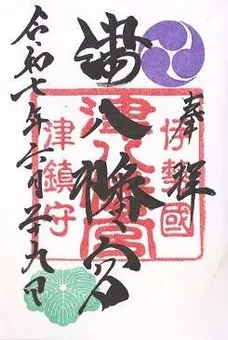 奉拝
伊勢國
津八幡宮
津八幡宮
津鎮守
令和七年六月廿九日